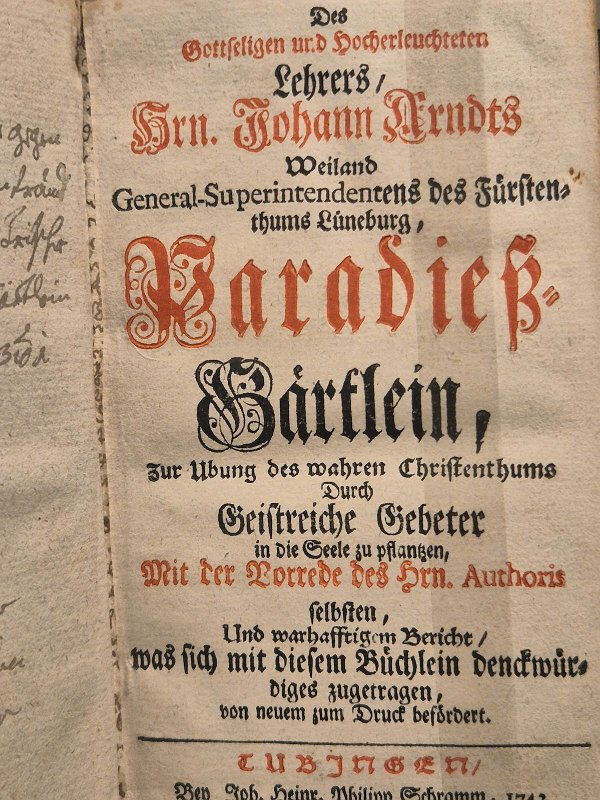 Des
Gottseligen und Hocherleuchteten
Lehrers,
Hrn. Johann Arndts
Weiland
General-Superintendentens des Fürsten-
thums Lüneburg,
Paradieß-
Gärtlein,
zur Ubung des wahren Christenthums
Durch
Geistreiche Gebeter
in die Seele zu pflantzen,
Mit der Vorrede des Hrn. Authoris
selbsten,
Und warhafftigem Bericht,
was sich mit diesem Büchlein denckwür-
diges zugetragen,
von neuem zum Druck befördert.
TUBINGEN,
Bey Joh. Heinr. Philipp Schramm,